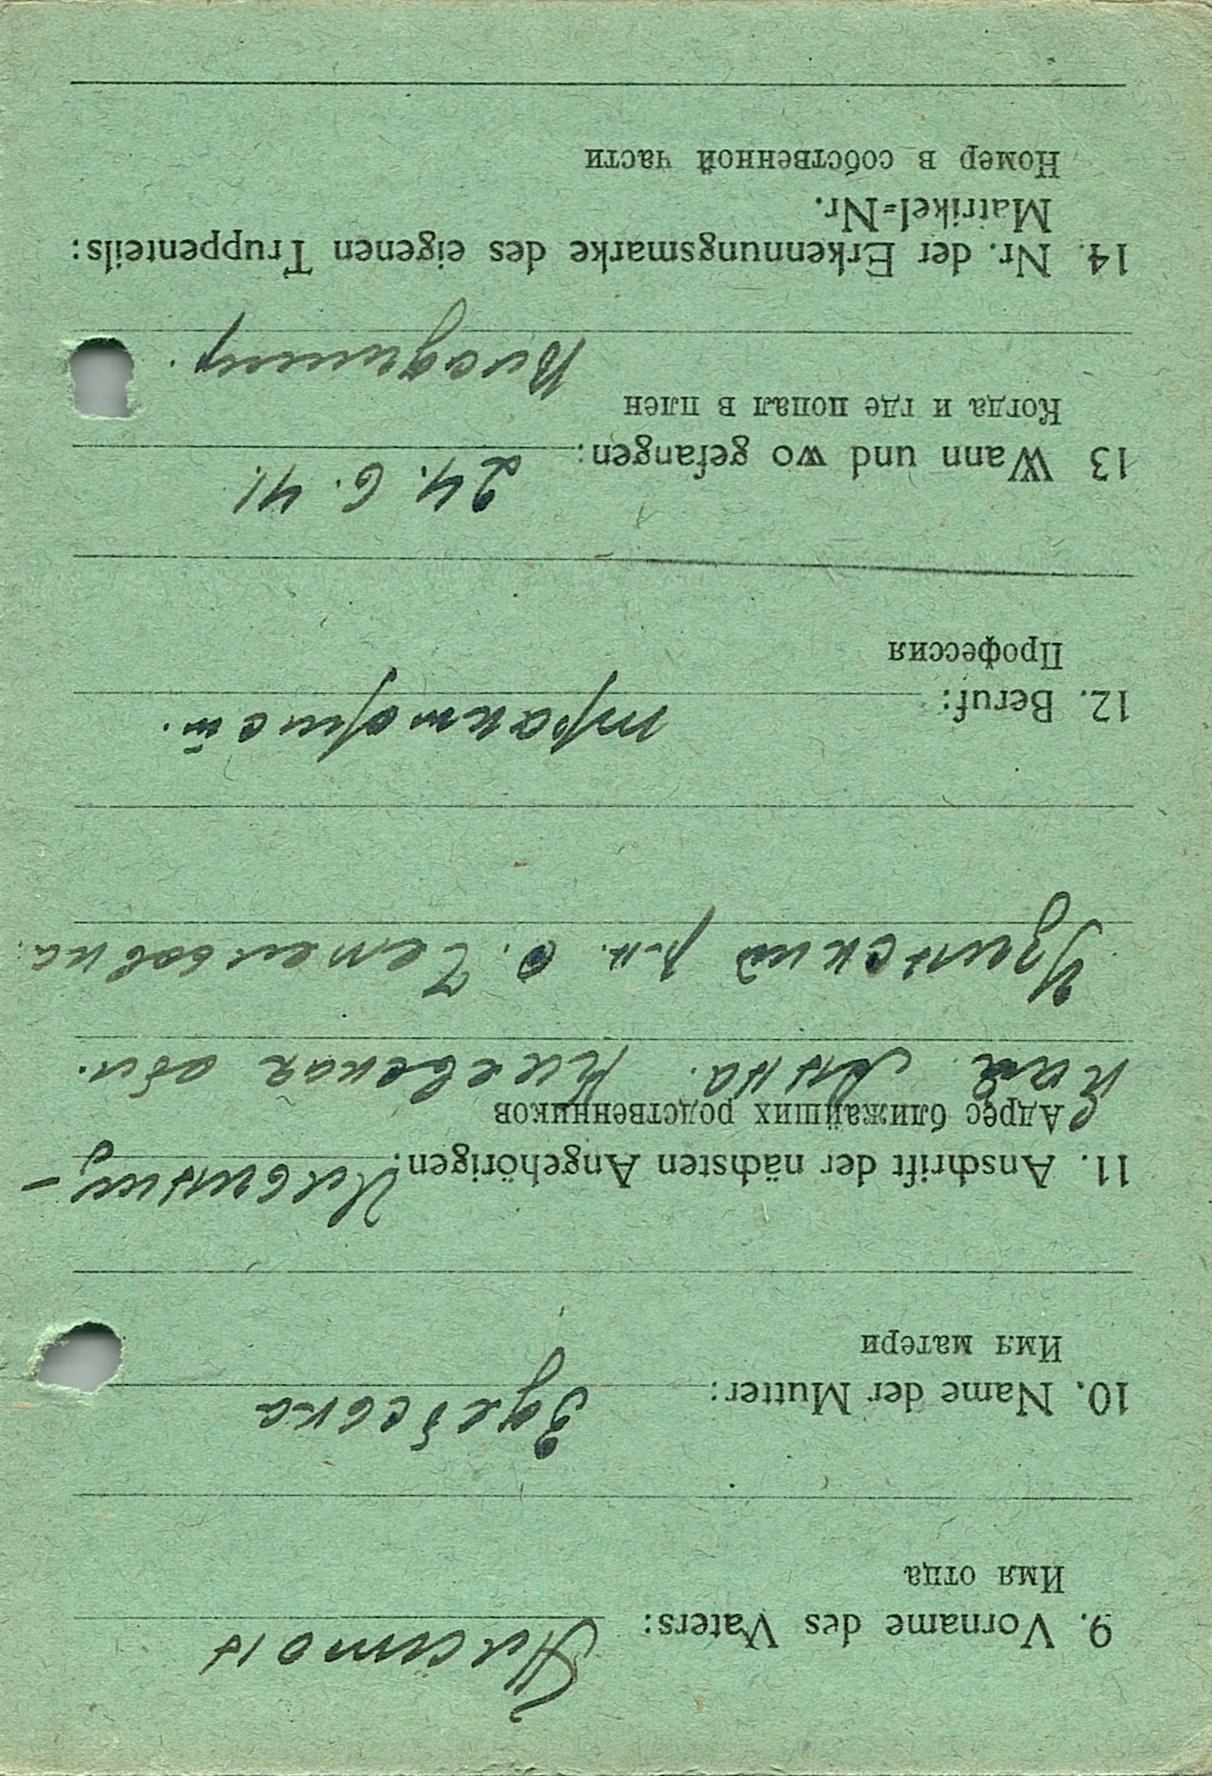 9. Vorname des Vaters:
Имя отца
10. Name der Mutter:
Имя матери
11. Anschrift der nächsten Angehörigen:
Адрес ближайших родственников
Анна. Киевская обл.
Узинский р-н. с.
12. Beruf: тракторист.
Профессия
13 Wann und wo gefangen: 24. 6. 41.
Когда и где попал в плен
14. Nr. der Erkennungsmarke des eigenen Truppenteils:
Matrikel=Nr.
Номер в собственной части